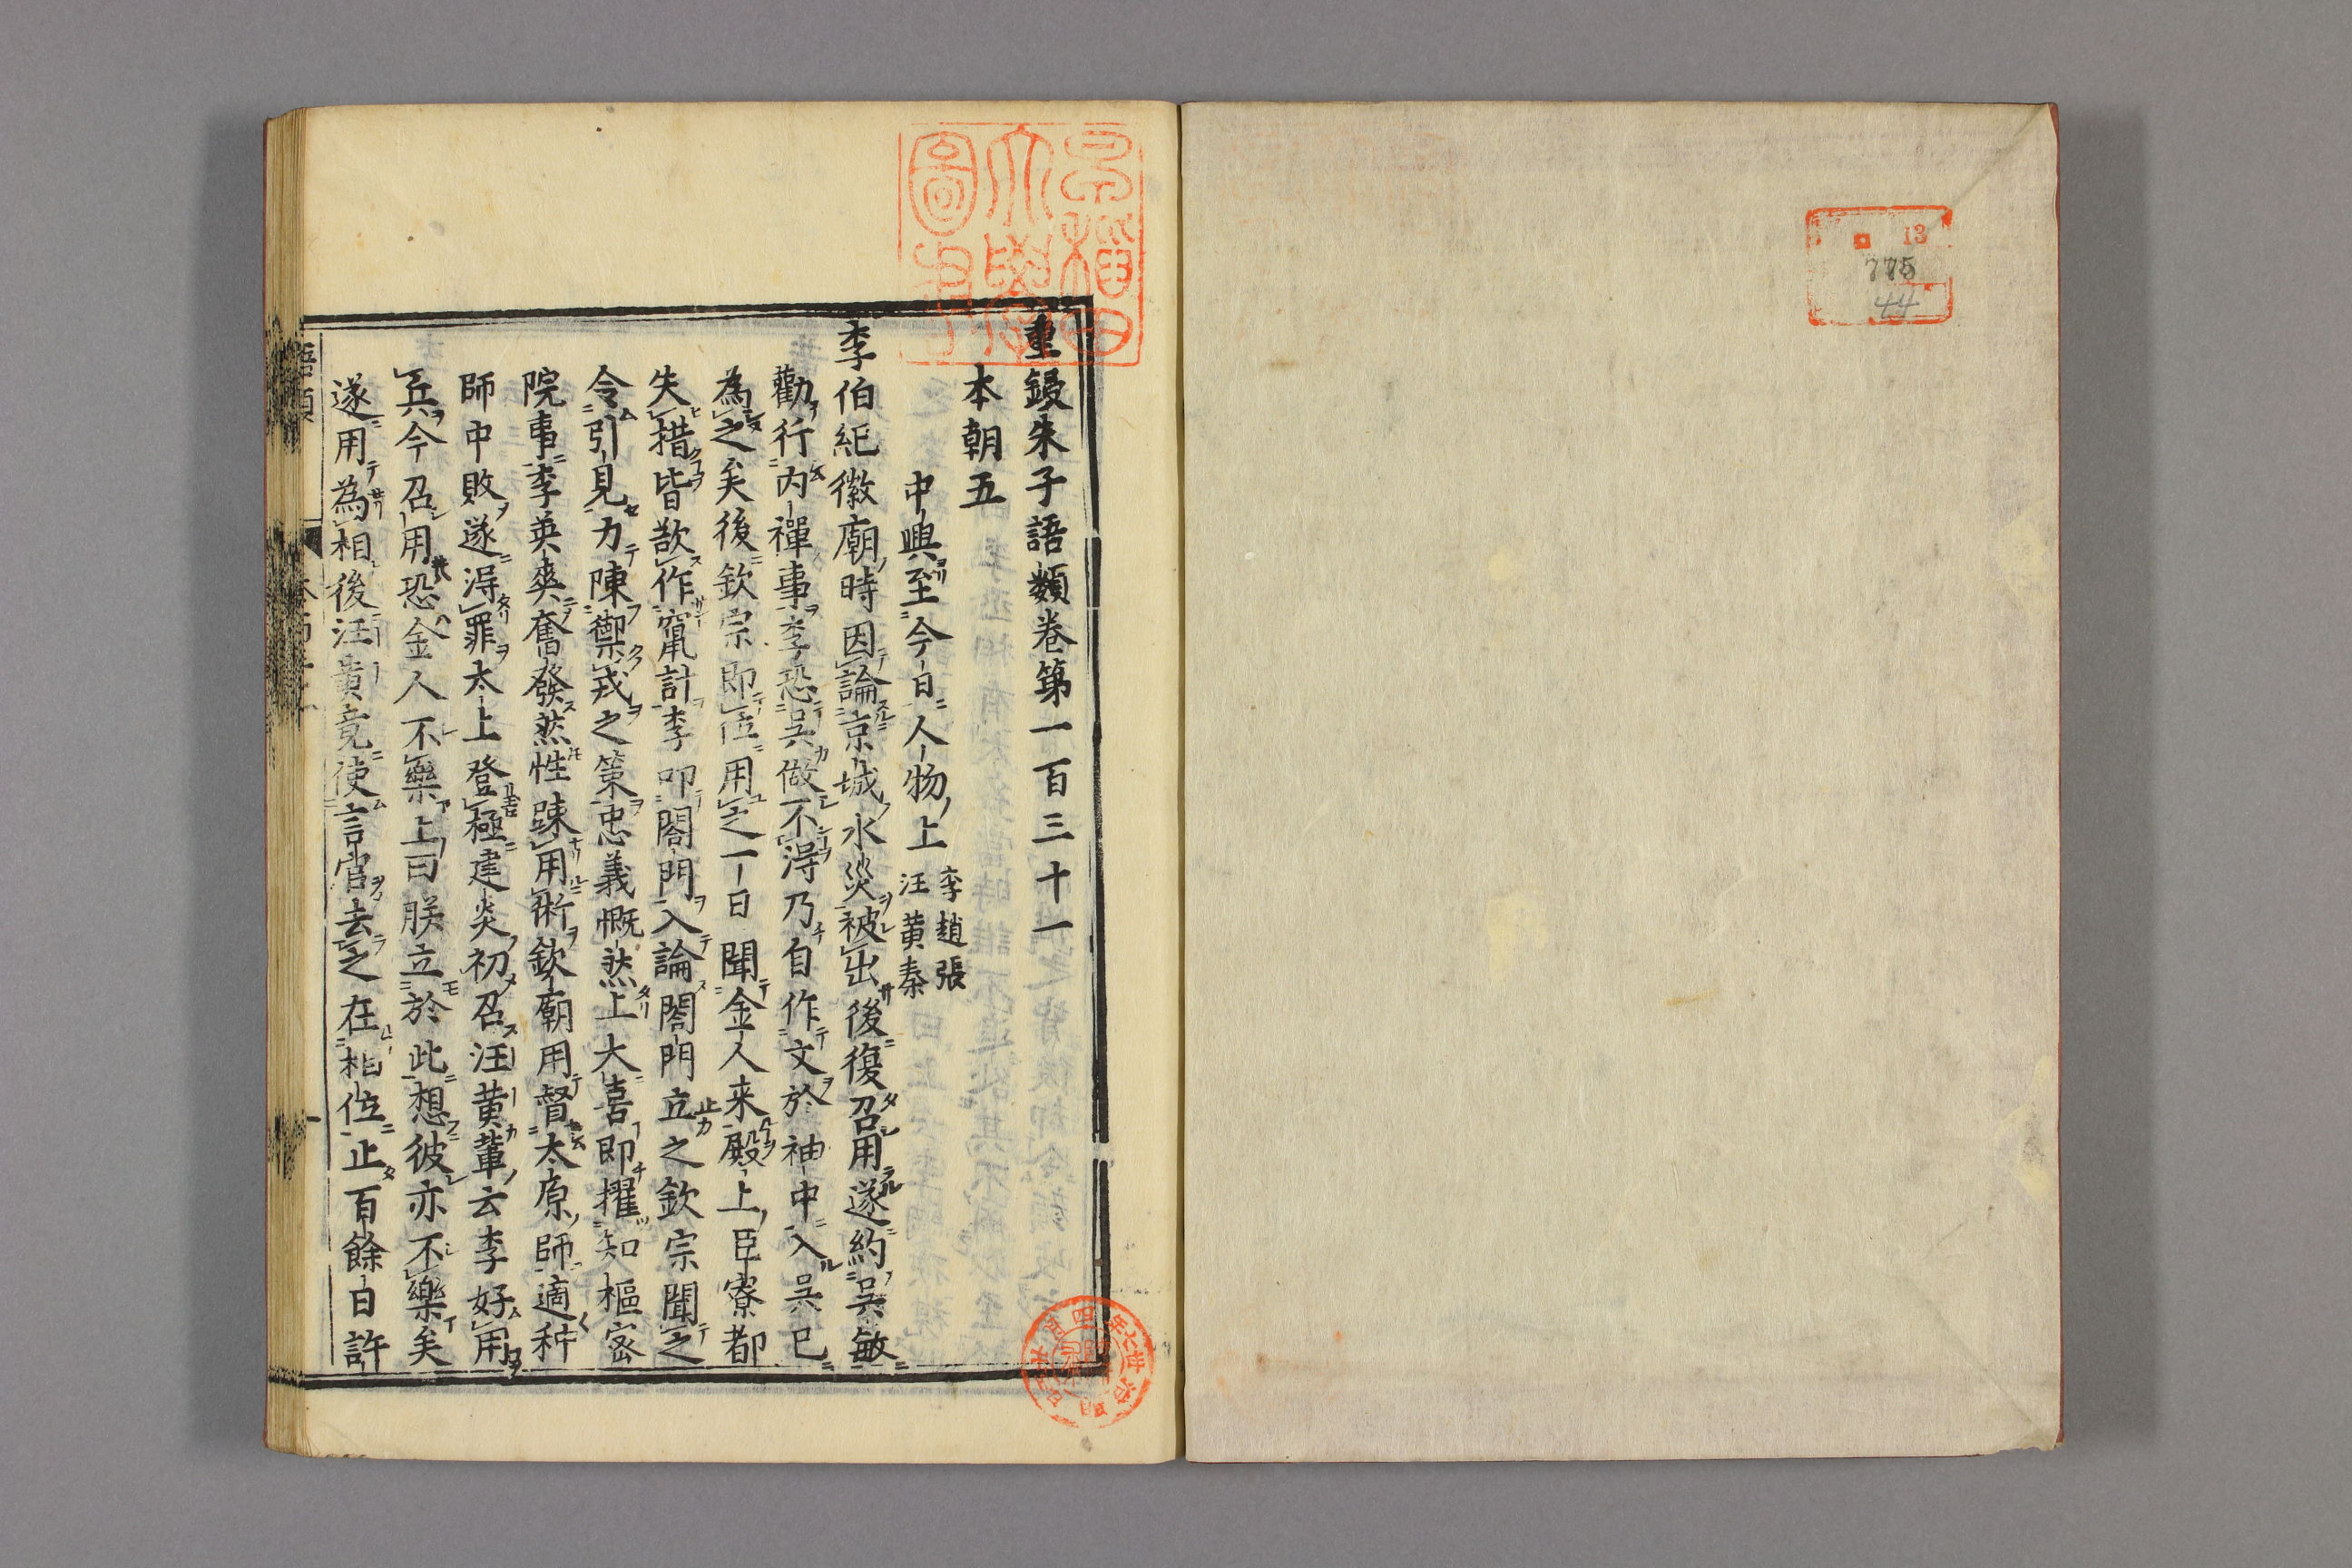 13
775
44
重鋟朱子語類卷第一百三十一
本朝五
中興至今日人物上
李趙張
汪黄秦
李伯紀徽廟時因論京城水災被出後復召用遂約吳敏
勸行内禪事李恐吳做不得乃自作文於袖中入吳已
為之矣後欽宗即位用之一日聞金人来殿上臣寮都
失措皆欲作竄計李叩閤門入論閤門立之欽宗聞之
令引見力陳禦戎之策忠義慨然上大喜即擢知樞密
院事李英爽奮發然性踈用術欽廟用督太原師適种
師中敗遂得罪太上登極建炎初召汪黄輩云李好用
兵今召用恐金人不樂上曰朕立於此想彼亦不樂矣
遂用為相後汪黄竟使言官去之在相位止百餘日許